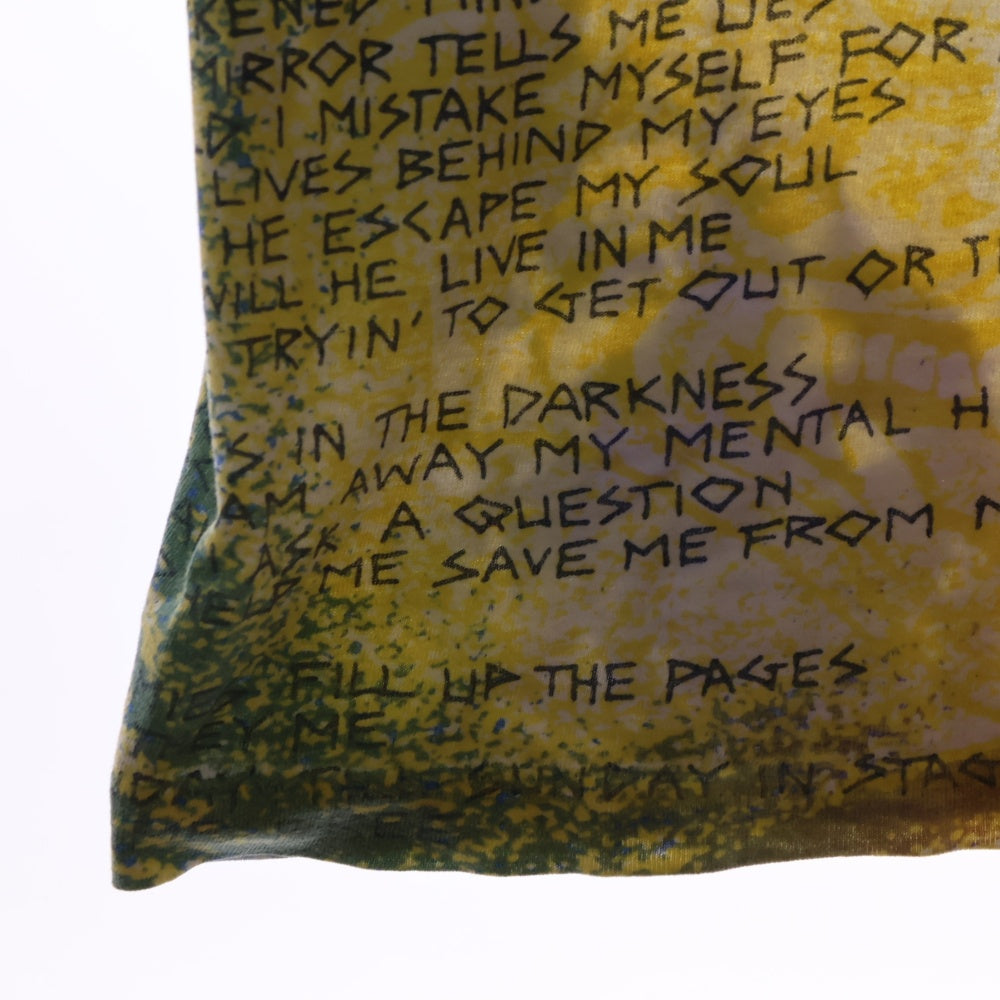 KENED MIND
MIRROR TELLS ME LIES
D I MISTAKE MYSELF FOR
LIVES BEHIND MY EYES
HE ESCAPE MY SOUL
WILL HE LIVE IN ME
TRYIN' TO GET OUT OR
S IN THE DARKNESS
AM AWAY MY MENTAL H
I ASK A QUESTION
HELP ME SAVE ME FROM
FILL UP THE PAGES
EY ME
SUNDAY IN STAG